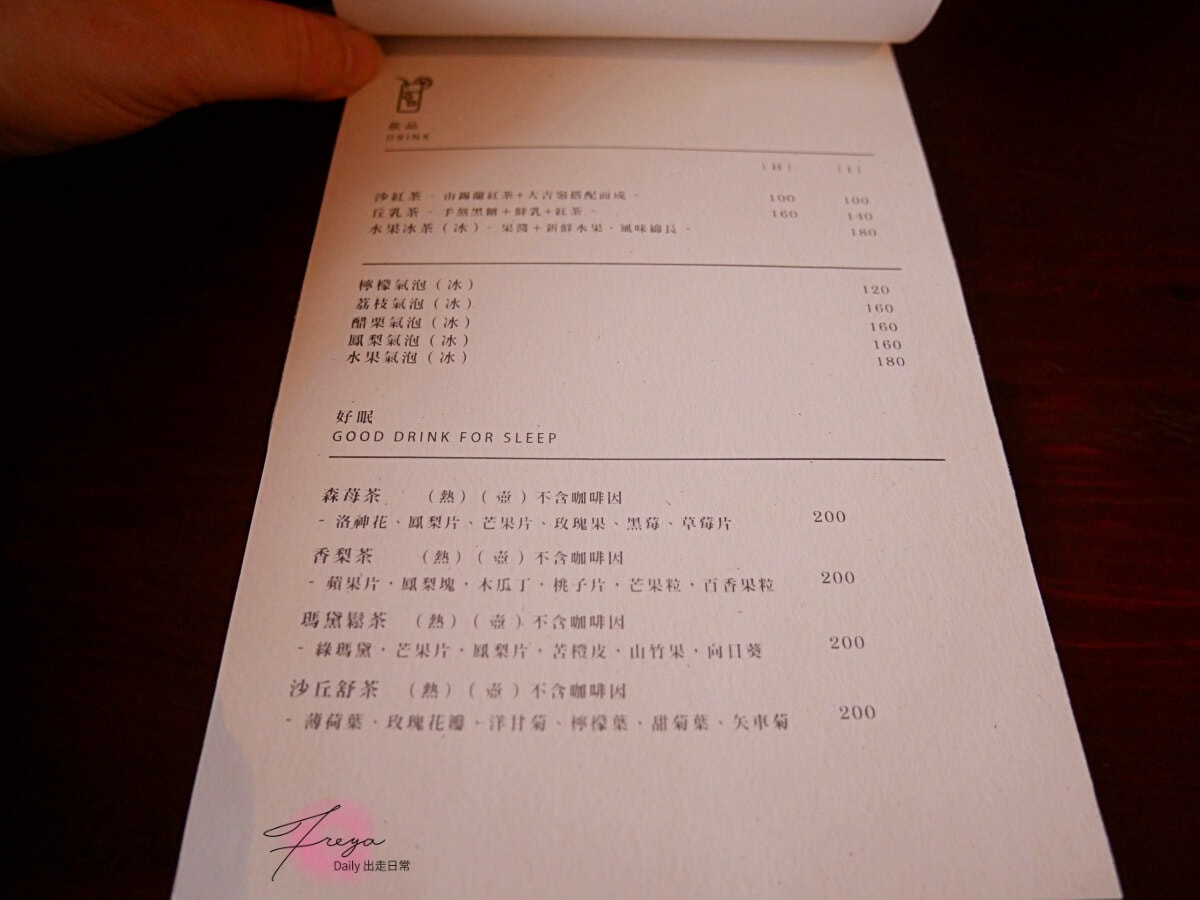 飲品
DRINK
(H) (I)
沙紅茶 - 由錫蘭紅茶+大吉嶺搭配而成 - 100 100
丘乳茶 - 手熬黑糖+鮮乳+紅茶 - 160 140
水果冰茶(冰) - 果醬+新鮮水果,風味綿長 - 180
檸檬氣泡(冰) 120
荔枝氣泡(冰) 160
醋栗氣泡(冰) 160
鳳梨氣泡(冰) 160
水果氣泡(冰) 180
好眠
GOOD DRINK FOR SLEEP
森莓茶 (熱)(壺)不含咖啡因
- 洛神花、鳳梨片、芒果片、玫瑰果、黑莓、草莓片 200
香梨茶 (熱)(壺)不含咖啡因
- 蘋果片,鳳梨塊,木瓜丁,桃子片,芒果粒,百香果粒 200
瑪黛鬆茶 (熱)(壺)不含咖啡因
- 綠瑪黛,芒果片,鳳梨片,苦橙皮,山竹果,向日葵 200
沙丘舒茶 (熱)(壺)不含咖啡因
- 薄荷葉、玫瑰花瓣、洋甘菊、檸檬葉、甜菊葉、矢車菊 200
Freya
Daily 出走日常